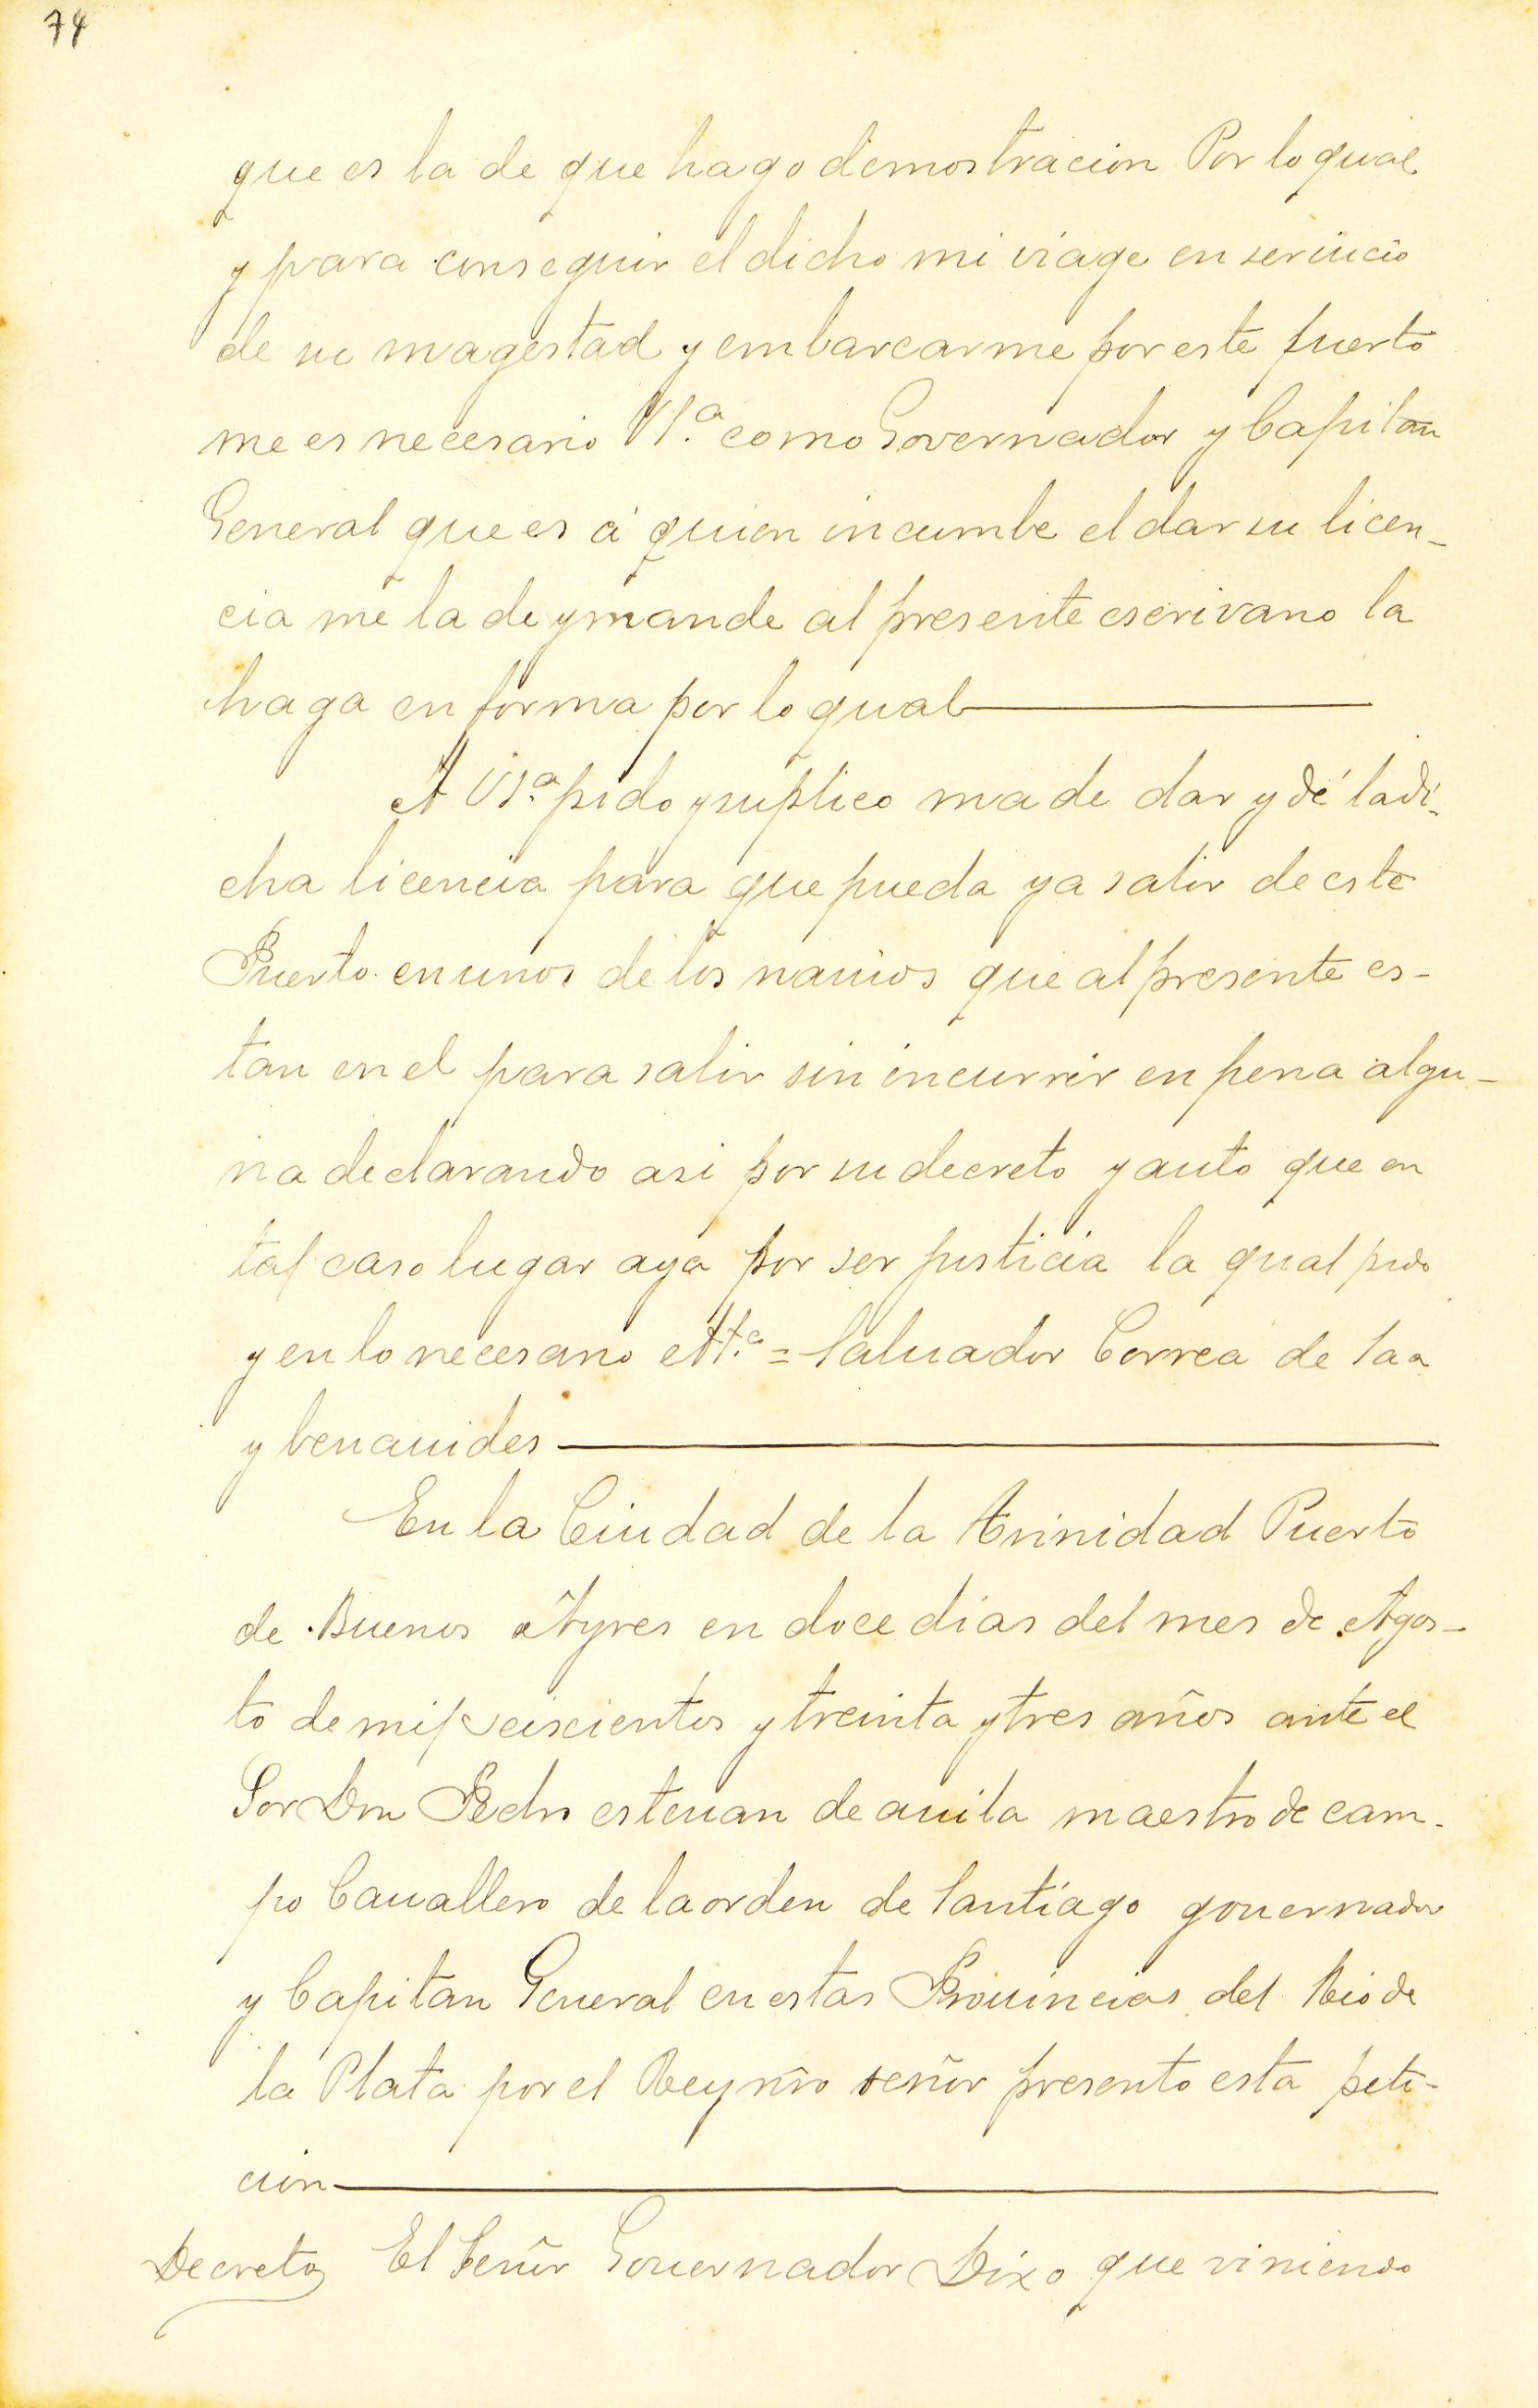 74
que es la de que hago demostracion Por lo qual
y para conseguir el dicho mi viage en seruicio
de su magestad y embarcarme por este puerto
me es necesario VSª como Governador y Capitan
General que es á quien incumbe el dar su licen-
cia me la de y mande al presente escrivano la
haga en forma por lo qual
A VSª pido y suplico ma de dar y dé la di-
cha licencia para que pueda ya salir de este
Puerto en unos de los nauios que al presente es-
tan en el para salir sin incurrir en pena algu-
na declarando asi por su decreto y auto que en
tal caso lugar aya por ser justicia la qual pido
y en lo necesario = Saluador Correa de Saa
y benauides
En la Ciudad de la trinidad Puerto
de Buenos Ayres en doce dias del mes de Agos-
to de mil seiscientos y treinta y tres años ante el
Sor Don Pedro esteuan de auila maestro de cam-
po Cauallero de la orden de Santiago gouernador
y Capitan General en estas Prouincias del Rio de
la Plata por el Rey nrõ señor presento esta peti-
cion
Decreto El Señor Gouernador Dixo que viniendo